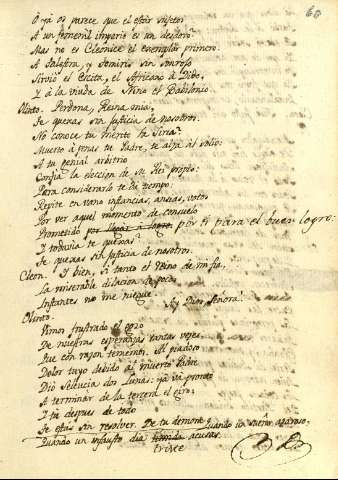 60
O ya os parece que el estar sujetos
A un femenil imperio es un desdoro?
Mas no es Cleonice el exemplar primero.
A Zalestra, y Semiris sin sonrojo
Sirvió el Escita, el Africano a Dido,
Y à la viuda de Nino el Babilonio.
Olinto. Perdona, Reyna mia,
Te quexas sin justicia de nosotros.
No conoce tu merito la Siria?
Muerto à penas tu Padre, te alza al solio:
A tu genial arbitrio
Confia la eleccion de su Rei propio:
Para considerarlo te da tiempo:
Repite en vano instancias, ansias, votos
Por ver aquel momento de consuelo
Prometido por llegar à lograr por ti para el buen logro:
Y todavia te quexas?
Te quexas sin justicia de nosotros.
Cleon. Y bien, si tanto el Reino de mi fia,
La miserable dilacion de pocos
Instantes no me niegue.
Olinto. Ay Dios, Señora!
Amor frustrado el gozo
De nuestras esperanzas tantas vezes,
Que con razon tememos. Al piadoso
Dolor tuyo debido al muerto Padre
Dió Seleucia dos Lunas: ya va pronto
A terminar de la tercera el giro;
Y tu despues de todo
Te estás sin resolver. De tu demora
Quando un sueño azaroso,
Quando un infausto dia acusas.
triste